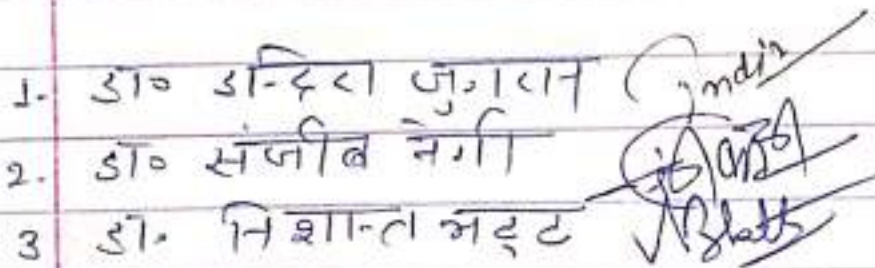 1. डा० इन्दिरा जुगरान Indira
2. डा० संजीब नेगी
3 डा. निशान्त भट्ट NBhatt